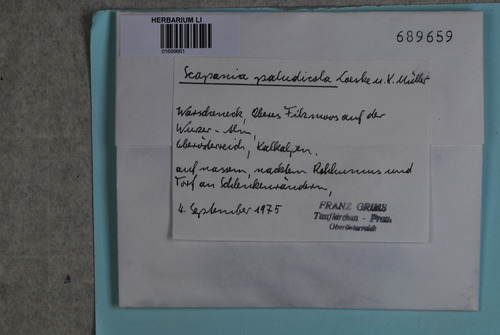 HERBARIUM LI
01699661
689659
Scapania paludicola Loeske u. K. Müller
Warscheneck, Oberes Filzmoos auf der
Wurzer-Alm,
Oberösterreich, Kalkalpen.
auf nassem, nacktem Rohhumus und
Torf an Schlenkenrändern,
4. September 1975
FRANZ GRIMS
Taufkirchen - Pram
Oberösterreich